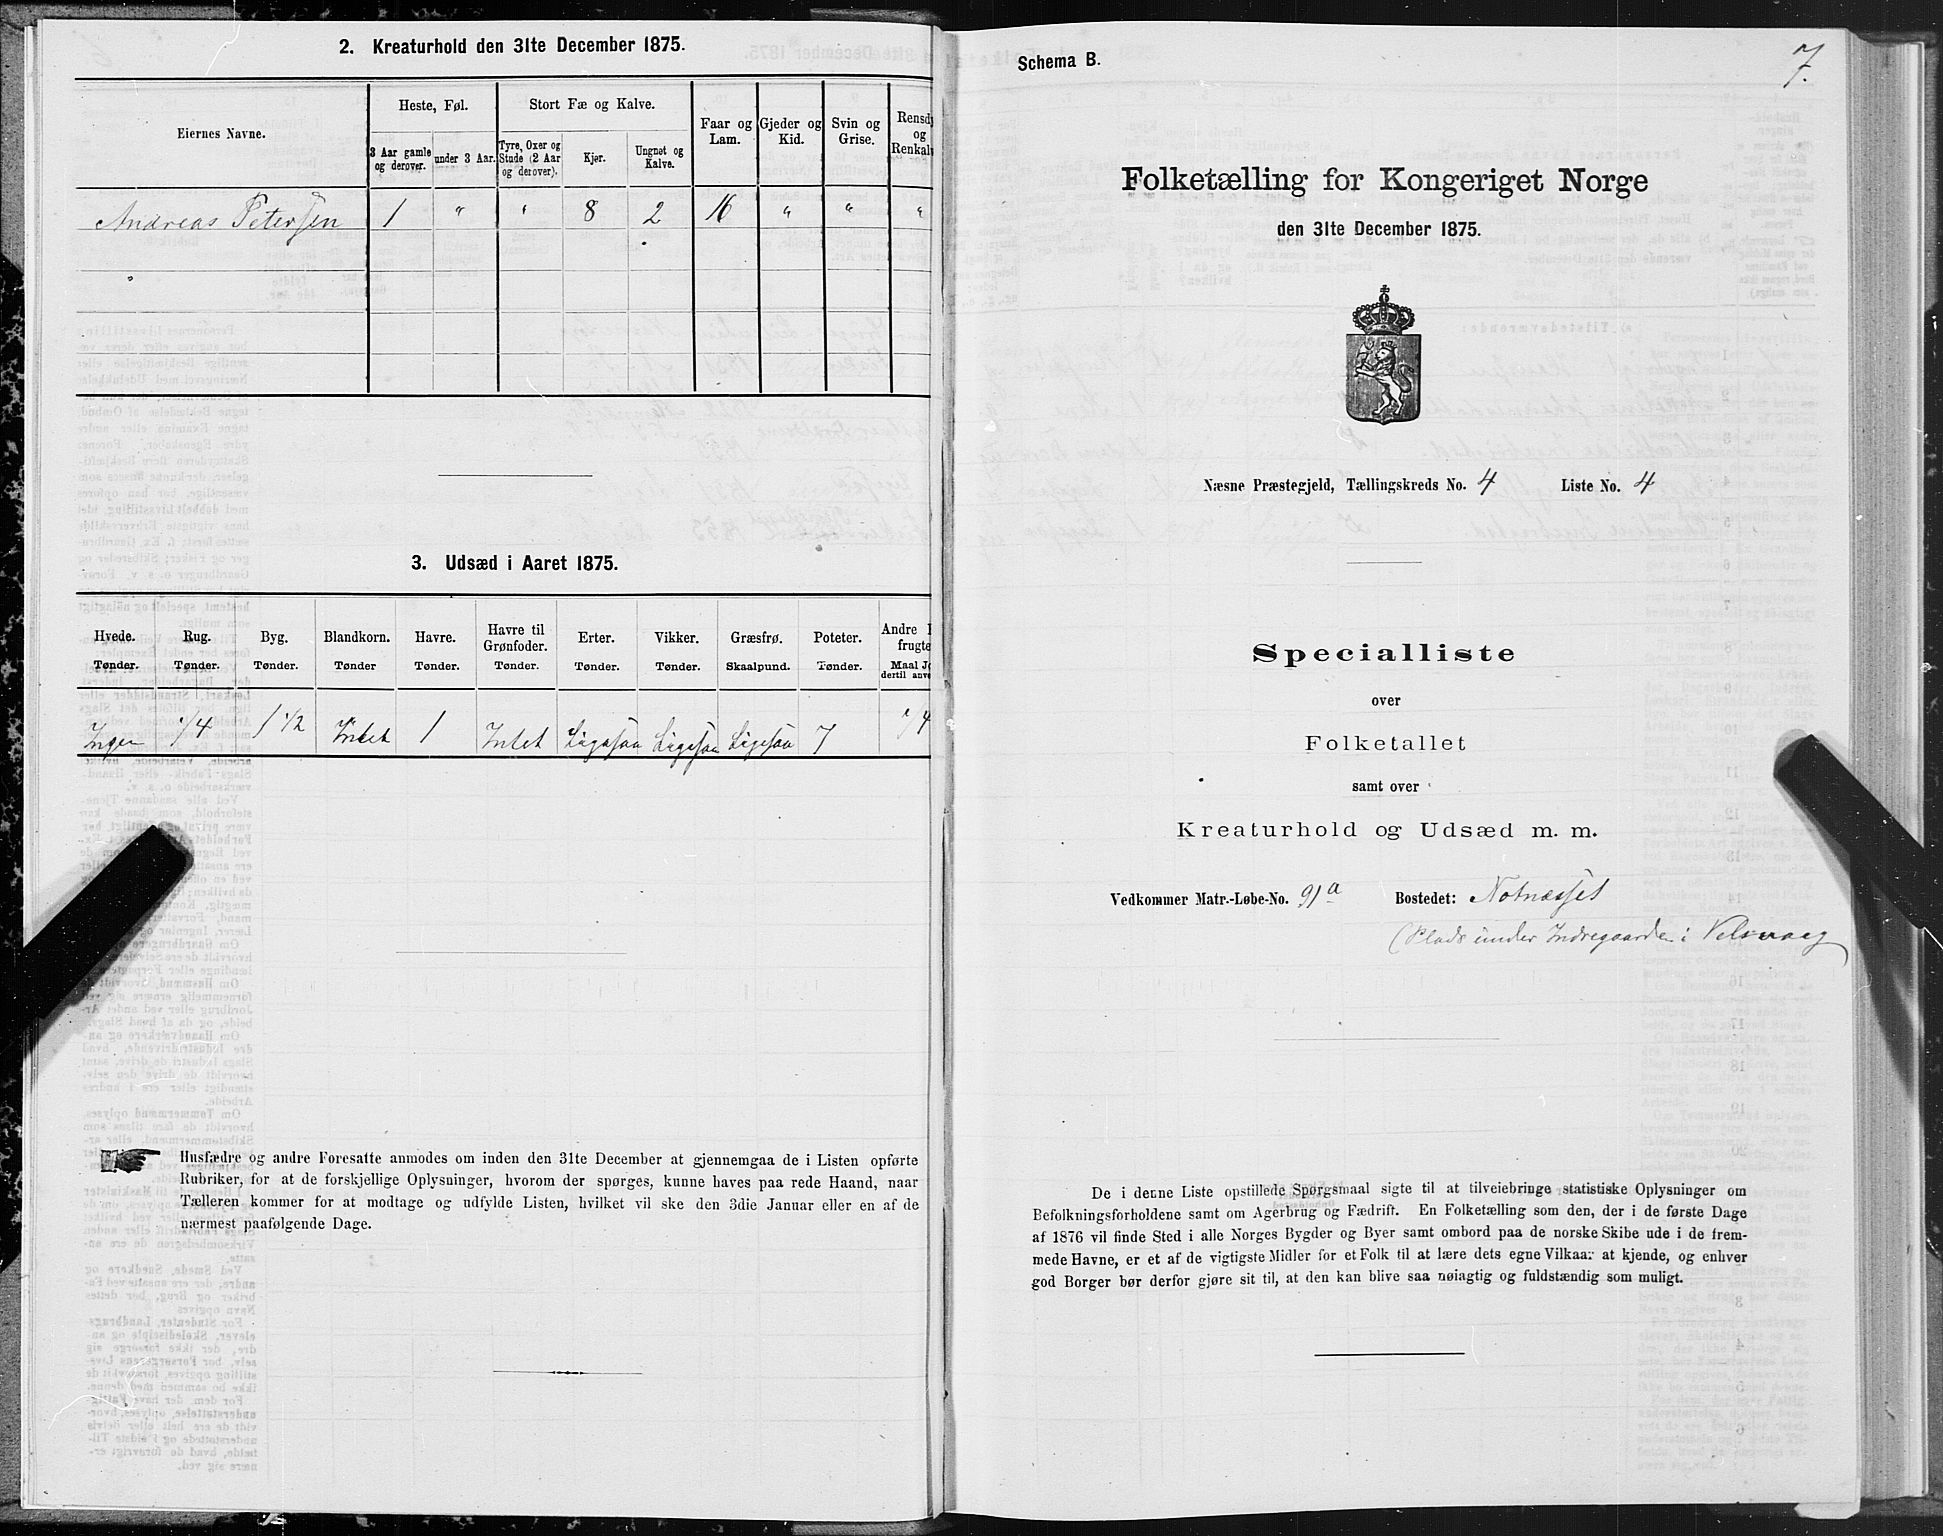 2. Kreaturhold den 31te December 1875.
Eiernes Navne.
Heste, Føl.
Stort Fæ og Kalve.
3 Aar gamle og derover.
under 3 Aar.
Tyre, Oxer og Stude (2 Aar og derover).
Kjør.
Ungnøt og Kalve.
Faar og Lam.
Gjeder og Kid.
Svin og Grise.
Rensdy og Renkalv
Andreas Petersen 1 " " 8 2 16 " " "
3. Udsæd i Aaret 1875.
Hvede. Rug. Byg. Blandkorn. Havre. Havre til Grønfoder. Erter. Vikker. Græsfrø. Poteter. Andre frugte
Tønder. Tønder. Tønder. Tønder Tønder. Tønder. Tønder. Tønder. Skaalpund. Tønder. Maal dertil anv
Ingen 1/4 1 1/2 Intet 1 Intet Ligesaa Ligesaa Ligesaa 7 1/4
Husfædre og andre Foresatte anmodes om inden den 31te December at gjennemgaa de i Listen opførte
Rubriker, for at de forskjellige Oplysninger, hvorom der spørges, kunne haves paa rede Haand, naar
Tælleren kommer for at modtage og udfylde Listen, hvilket vil ske den 3die Januar eller en af de
nærmest paafølgende Dage.
7.
Schema B.
Folketælling for Kongeriget Norge
den 31te December 1875.
Næsne Præstegjeld, Tællingskreds No. 4 Liste No. 4
Specialliste
over
Folketallet
samt over
Kreaturhold og Udsæd m. m.
Vedkommer Matr.-Løbe-No. 91a Bostedet: Notnæsset
(Plads under Indregaarden i Velsvaag
De i denne Liste opstillede Spørgsmaal sigte til at tilveiebringe statistiske Oplysninger om
Befolkningsforholdene samt om Agerbrug og Fædrift. En Folketælling som den, der i de første Dage
af 1876 vil finde Sted i alle Norges Bygder og Byer samt ombord paa de norske Skibe ude i frem-
mede Havne, er et af de vigtigste Midler for et Folk til at lære dets egne Vilkaar at kjende, og enhver
god Borger bør derfor gjøre sit til, at den kan blive saa nøiagtig og fuldstændig som muligt.